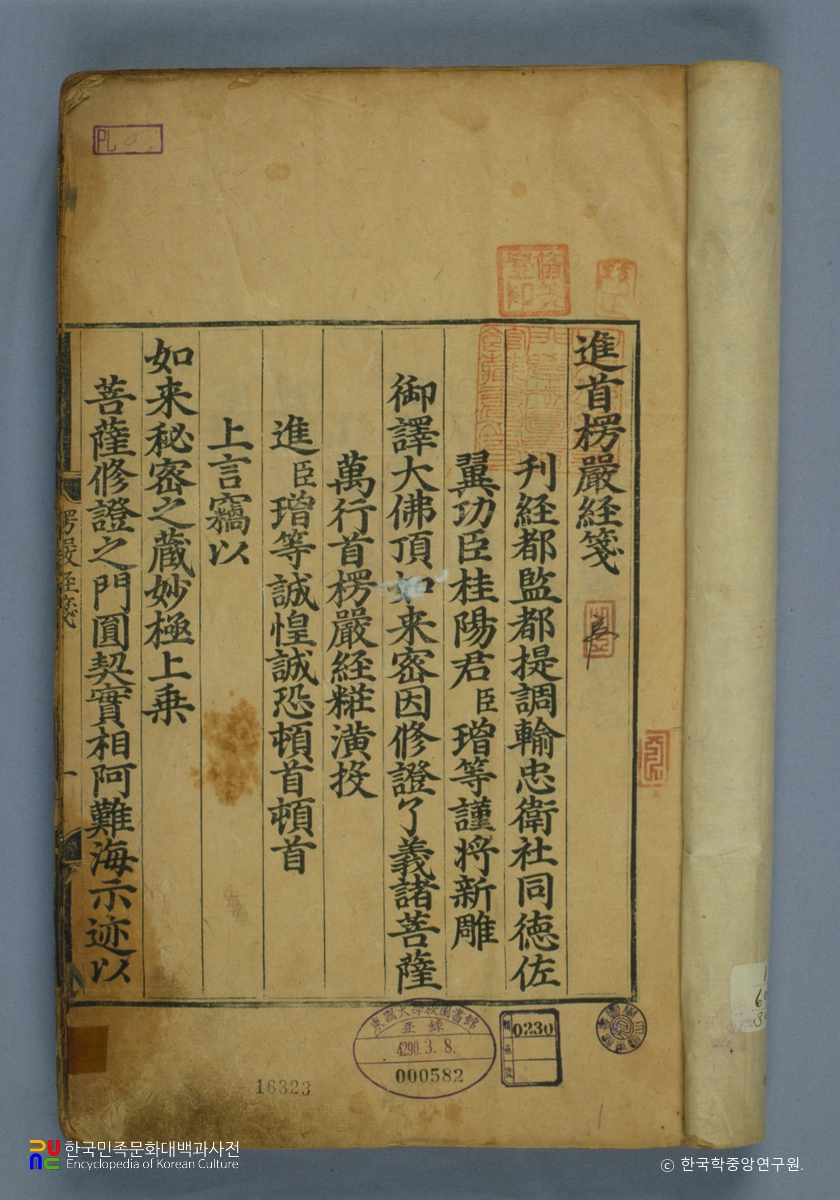 進首楞嚴経箋
刊経都監都提調輸忠衛社同德佐
翼功臣桂陽君臣璔等謹將新雕
御譯大佛頂如来密因修證了義諸菩薩
萬行首楞嚴経糚潢投
進臣璔等誠惶誠恐頓首頓首
上言竊以
如来秘密之蔵妙極上乗
菩薩修證之門圓契實相阿難海示迹以
楞嚴経箋
一
PL
東國大學校圖書館
登錄
4290.3.8.
000582
0230
16323
한국민족문화대백과사전
Encyclopedia of Korean Culture
© 한국학중앙연구원.